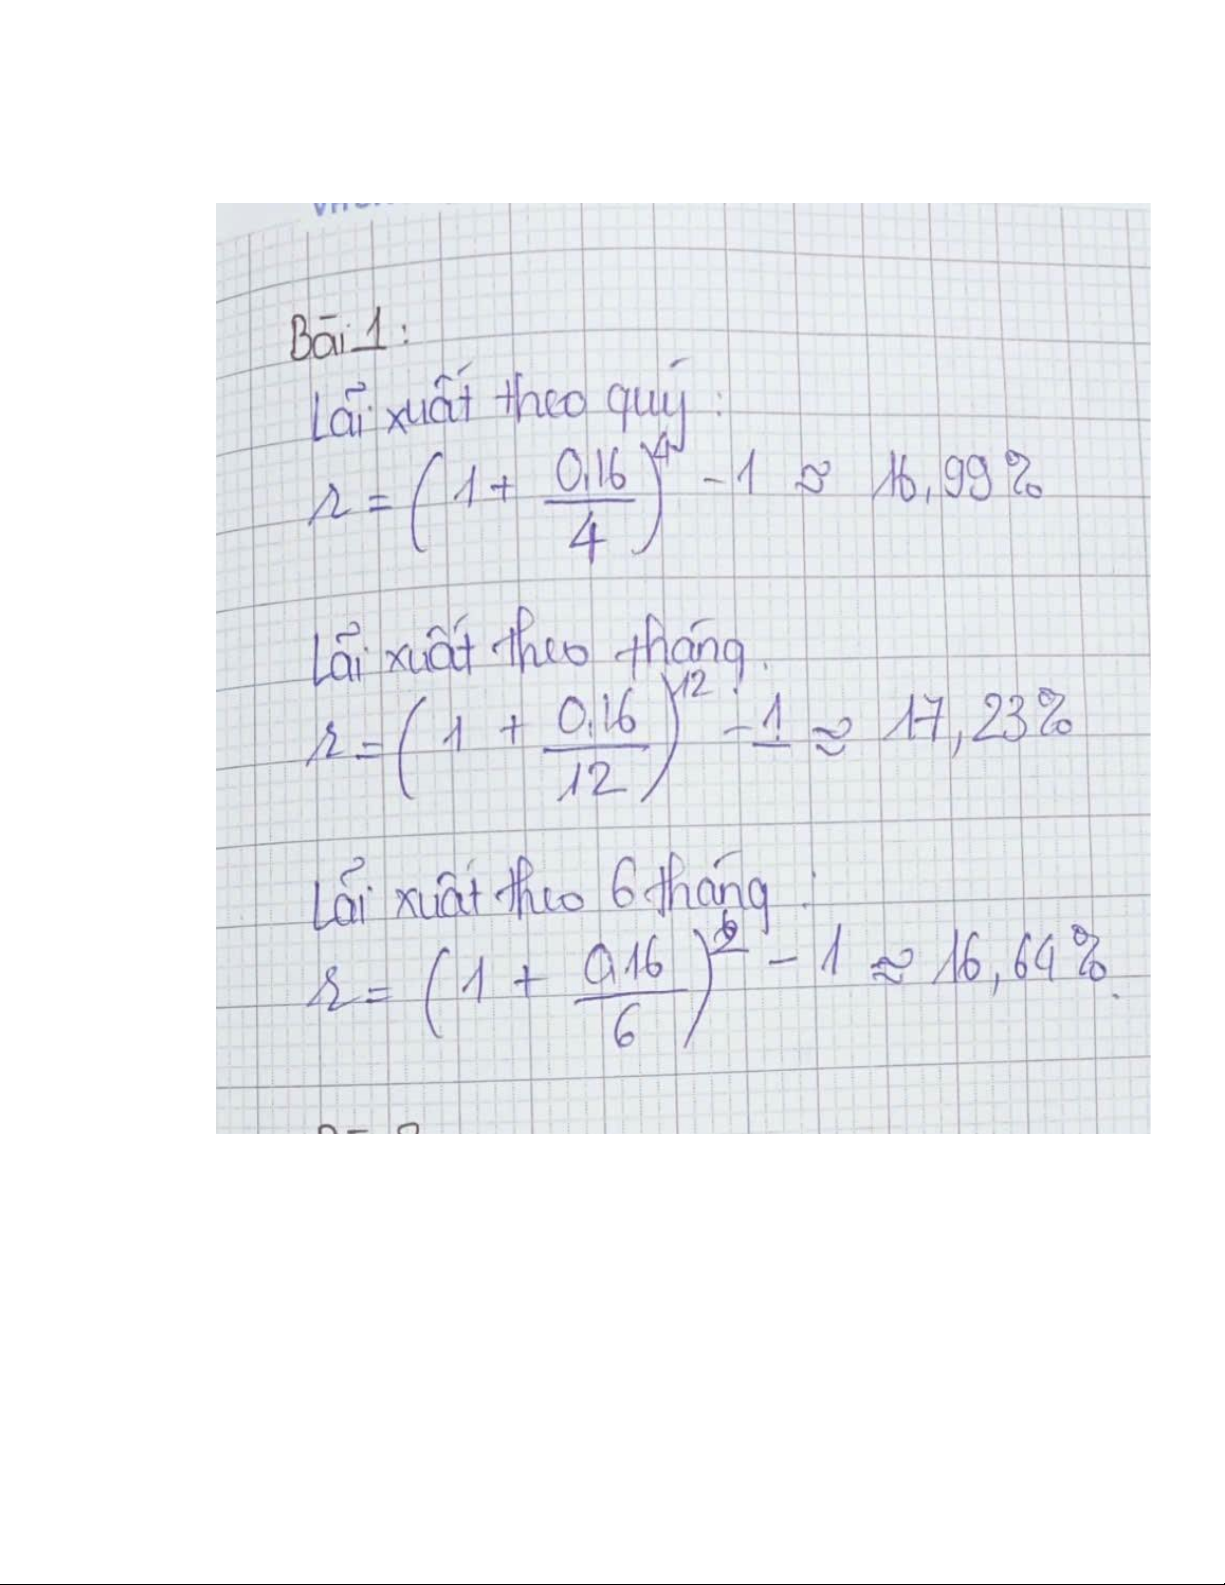 Bài 1:
Lãi xuất theo quý:
r = (1 + 0,16/4)^4 - 1 ≈ 16,99%
Lãi xuất theo tháng.
r = (1 + 0,16/12)^12 - 1 ≈ 17,23%
Lãi xuất theo 6 tháng:
r = (1 + 0,16/6)^2 - 1 ≈ 16,64%.